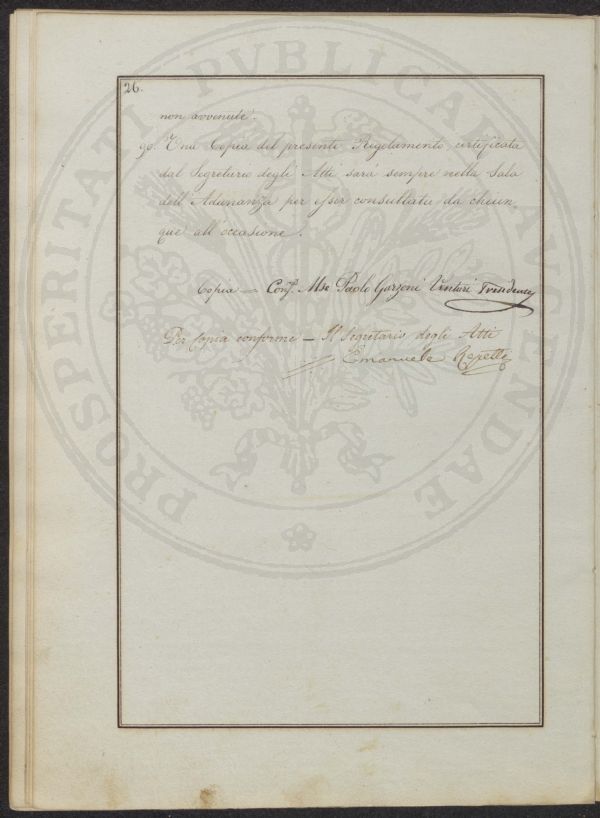 26.
non avvenute.
90. Una Copia del presente Regolamento certificata
dal Segretario degli Atti sarà sempre nella Sala
dell'Adunanza per esser consultata da chiun
que all'occasione.
Copia — Conf. Mse Paolo Garzoni Venturi Presidente
Per Copia conforme — Il Segretario degli Atti
Emanuele Repetti
PROSPERITATI PVBLICAE AVGENDAE